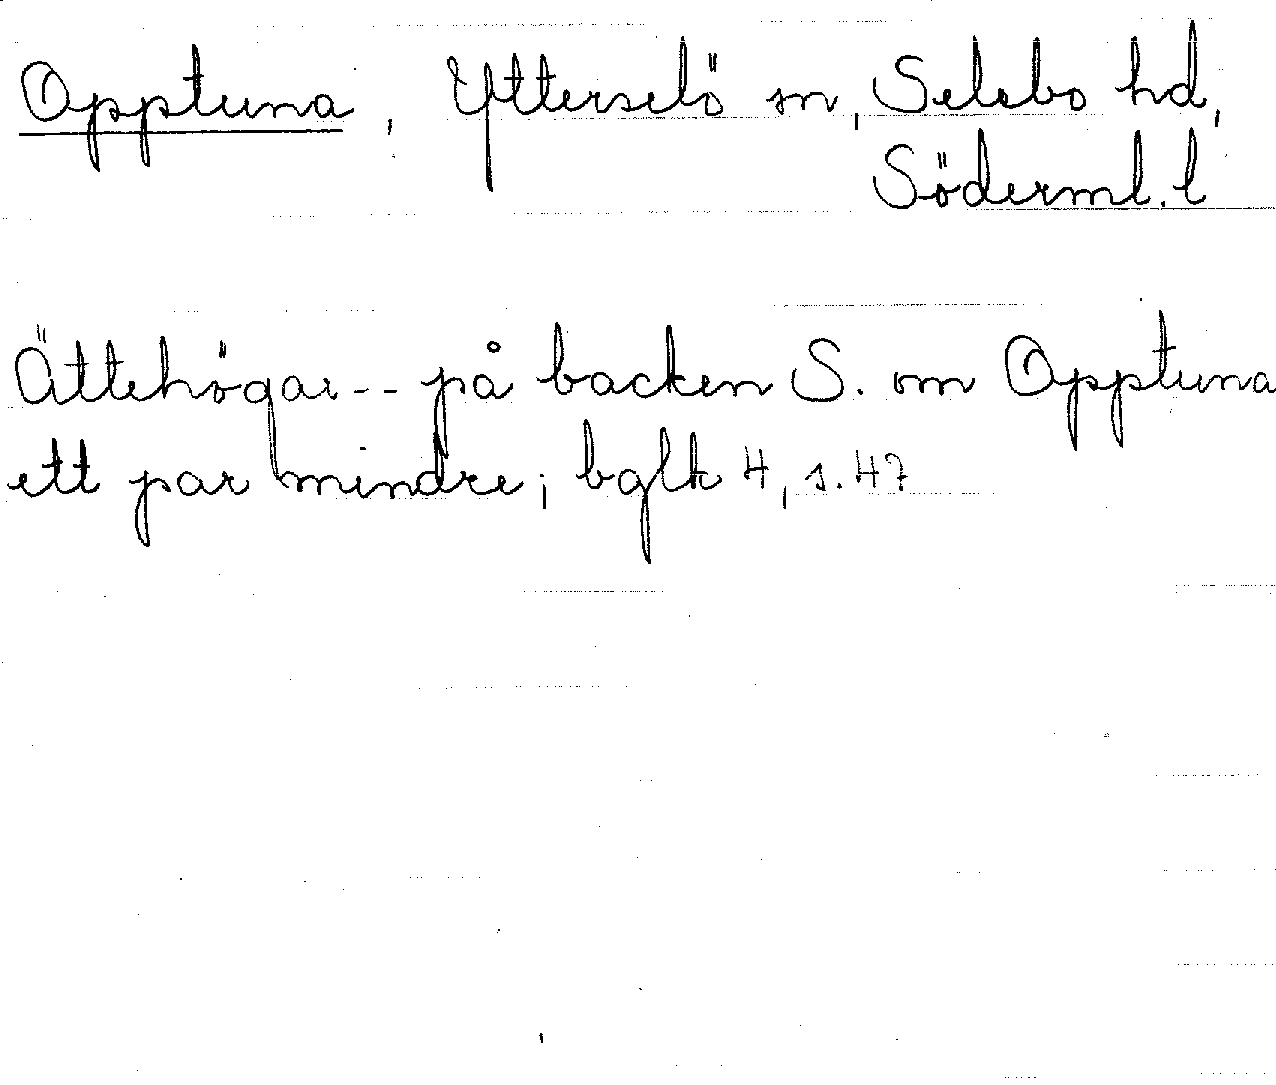 Opptuna, Ytterselö sn, Selebo hd,
Söderml. l
Ättehögar -- på backen S. om Opptuna
ett par mindre; bglk 4, s. 47